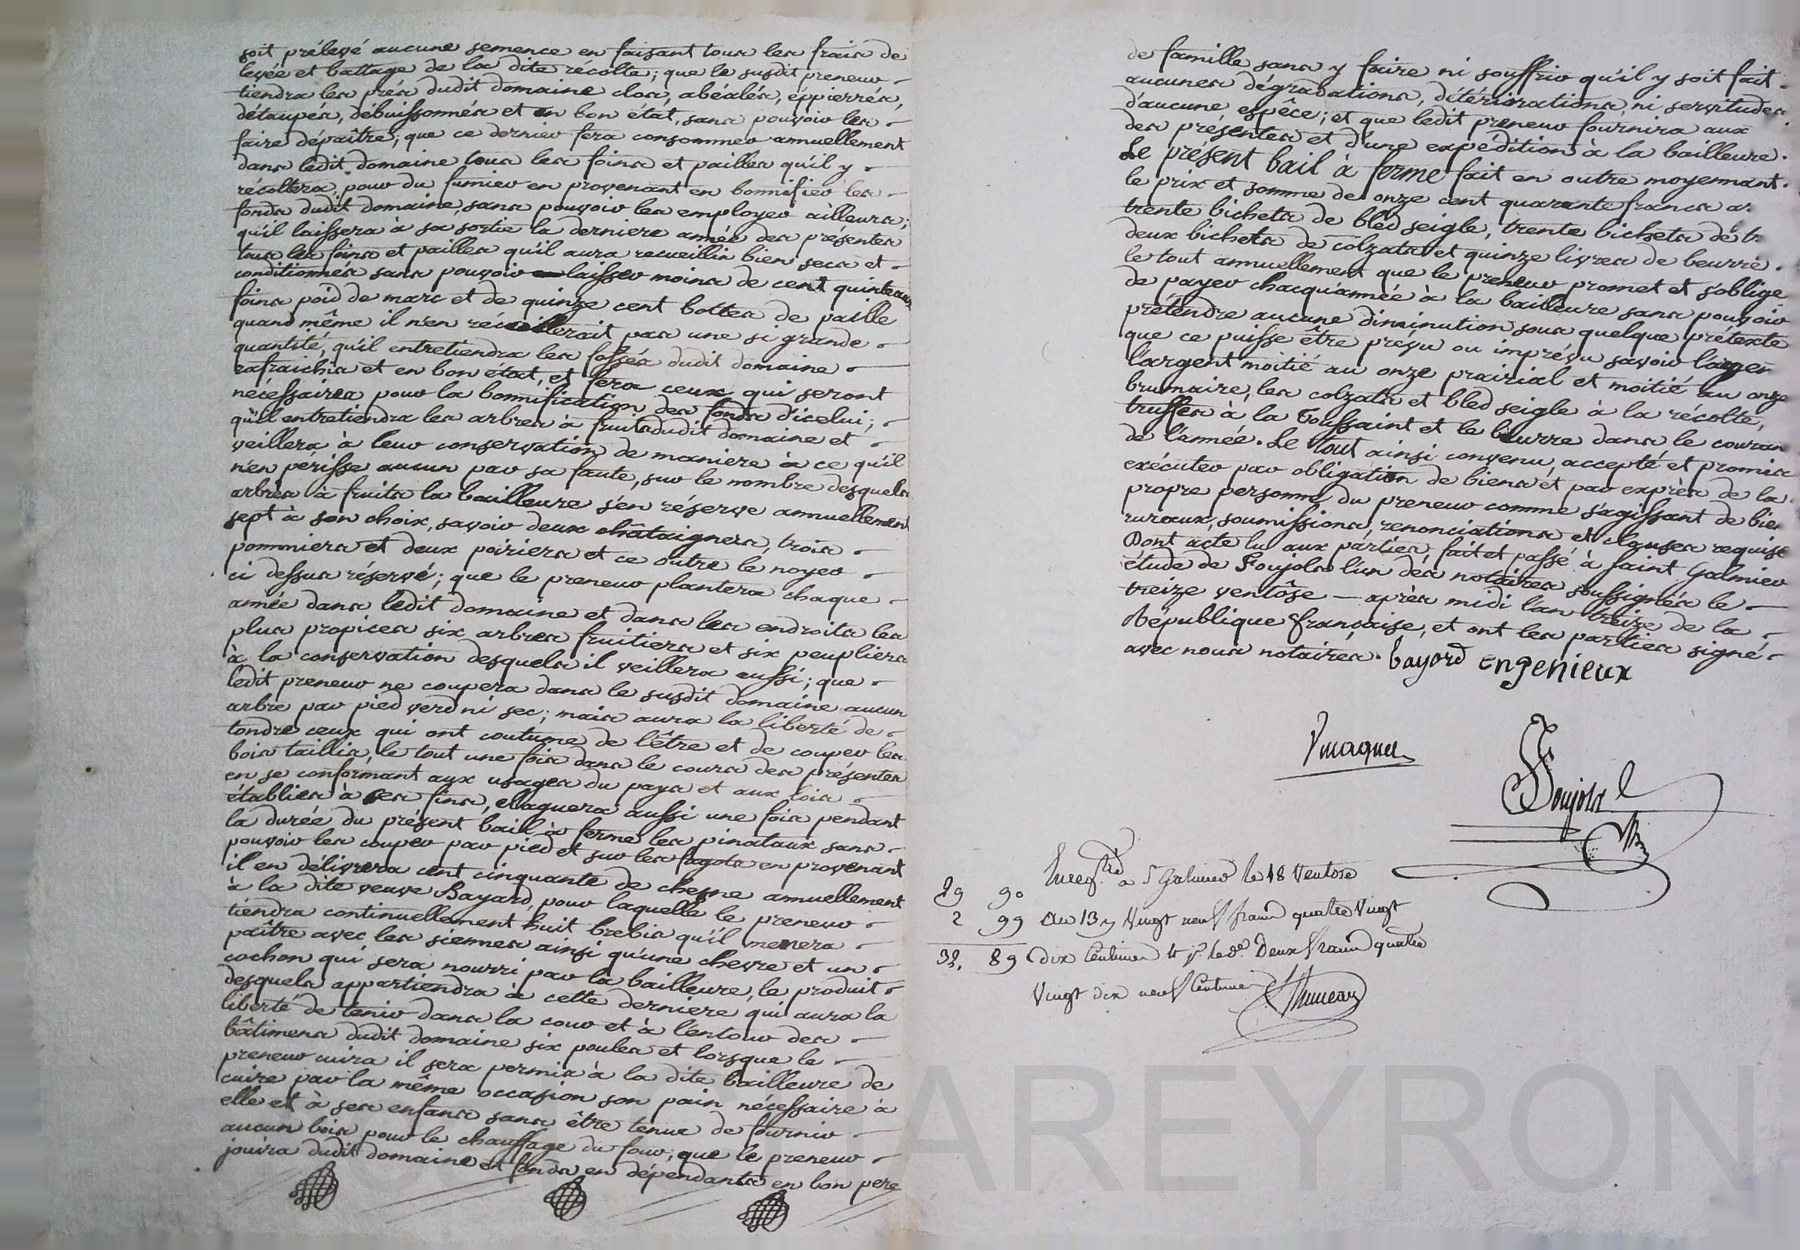 soit prélevé aucune semence en faisant tous les frais de
levée et battage de la dite récolte; que le susdit preneur
tiendra les prés dudit domaine clos, abéalés, éppierrés,
détaupés, débuissonnés et en bon état, sans pouvoir les
faire dépaître; que ce dernier fera consommer annuellement
dans ledit domaine tous les foins et pailles qu'il y
récoltera, pour du fumier en provenant en bonnifier les
fonds dudit domaine, sans pouvoir les employer ailleurs;
qu'il laissera à sa sortie la derniere année des présentes
tous les foins et pailles qu'il aura recueillis bien secs et
conditionnés sans pouvoir laisser moins de cent quinteaux
foins poid de marc et de quinze cent bottes de paille
quand même il n'en récueillerait pas une si grande
quantité, qu'il entretiendra les fossés dudit domaine
rafraichis et en bon état, et fera ceux qui seront
nécessaires pour la bonnification des fonds d'icelui;
qu'il entretiendra les arbres à fruits dudit domaine et
veillera à leur conservation de maniere à ce qu'il
n'en périsse aucun par sa faute, sur le nombre desquels
arbres à fruits la bailleure s'en réserve annuellement
sept à son choix, savoir deux châtaigners, trois
pommiers et deux poiriers et ce outre le noyer
ci dessus réservé; que le preneur plantera chaque
année dans ledit domaine et dans les endroits les
plus propices six arbres fruitiers et six peupliers
à la conservation desquels il veillera aussi; que
ledit preneur ne coupera dans le susdit domaine aucun
arbre par pied verd ni sec; mais aura la liberté de
tondre ceux qui ont coutume de l'être et de couper les
bois taillis, le tout une fois dans le cours des présentes
en se conformant aux usages du pays et aux lois
établies à ses fins, ellaguera aussi une fois pendant
la durée du présent bail à ferme les pinataux sans
pouvoir les couper par pied et sur les fagots en provenant
il en délivrera cent cinquante de chesne annuellement
à la dite veuve Bayard, pour laquelle le preneur
tiendra continuellement huit brebis qu'il menera
paître avec les siennes ainsi qu'une chevre et un
cochon qui sera nourri par la bailleure, le produit
desquels appartiendra à cette derniere, qui aura la
liberté de tenir dans la cour et à l'entour des
bâtimens dudit domaine six poules et lorsque le
preneur cuira il sera permis à la dite bailleure de
cuire par la même occasion son pain nécessaire à
elle et à ses enfans sans être tenue de fournir
aucun bois pour le chauffage du four; que le preneur
jouira dudit domaine et fonds en dépendants en bon pere
de famille sans y faire ni souffrir qu'il y soit fait
aucunes dégradations, détériorations, ni servitudes
d'aucune espêce; et que ledit preneur fournira aux
des présentes et d'une expédition à la bailleure.
Le présent bail à ferme fait en outre moyennant
le prix et somme de onze cent quarante francs
trente bichets de bled seigle, trente bichets de
deux bichets de colzats et quinze livres de beurre
le tout annuellement que le preneur promet et s'oblige
de payer chacqu'année à la bailleure sans pouvoir
prétendre aucune diminution sous quelque prétexte
que ce puisse être prévu ou imprévu savoir
l'argent moitié au onze prairial et moitié au onze
brumaire, les colzats et bled seigle à la récolte,
truffes à la Toussaint et le beurre dans le couran
de l'année. Le tout ainsi convenu, accepté et promis
exécuter par obligation de biens et par exprès de la
propre personne du preneur comme s'agissant de bien
ruraux, soumissions, renonciations et clauses requise
Dont acte lu aux parties, fait et passé à saint Galmier
étude de Foujols l'un des notaires soussignés le
treize ventôse après midi l'an treize de la
République française, et ont les parties signé
avec nous notaires. bayard Engenieux
Foujols
Enregtré a St Galmier le 18 Ventose
29 90
2 99 an 13 Vingt neuf francs quatre Vingt
32, 89 dix Centimes Deux francs quatre
Vingt dix neuf Centimes
CHAREYRON